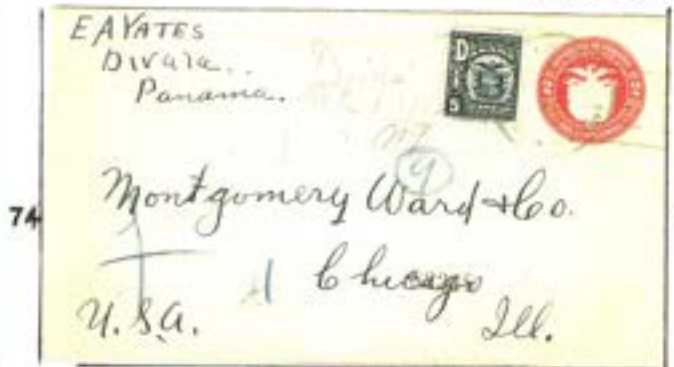 74
E A YATES
Divala.
Panama.
Montgomery Ward & Co.
Chicago
Ill.
U.S.A.